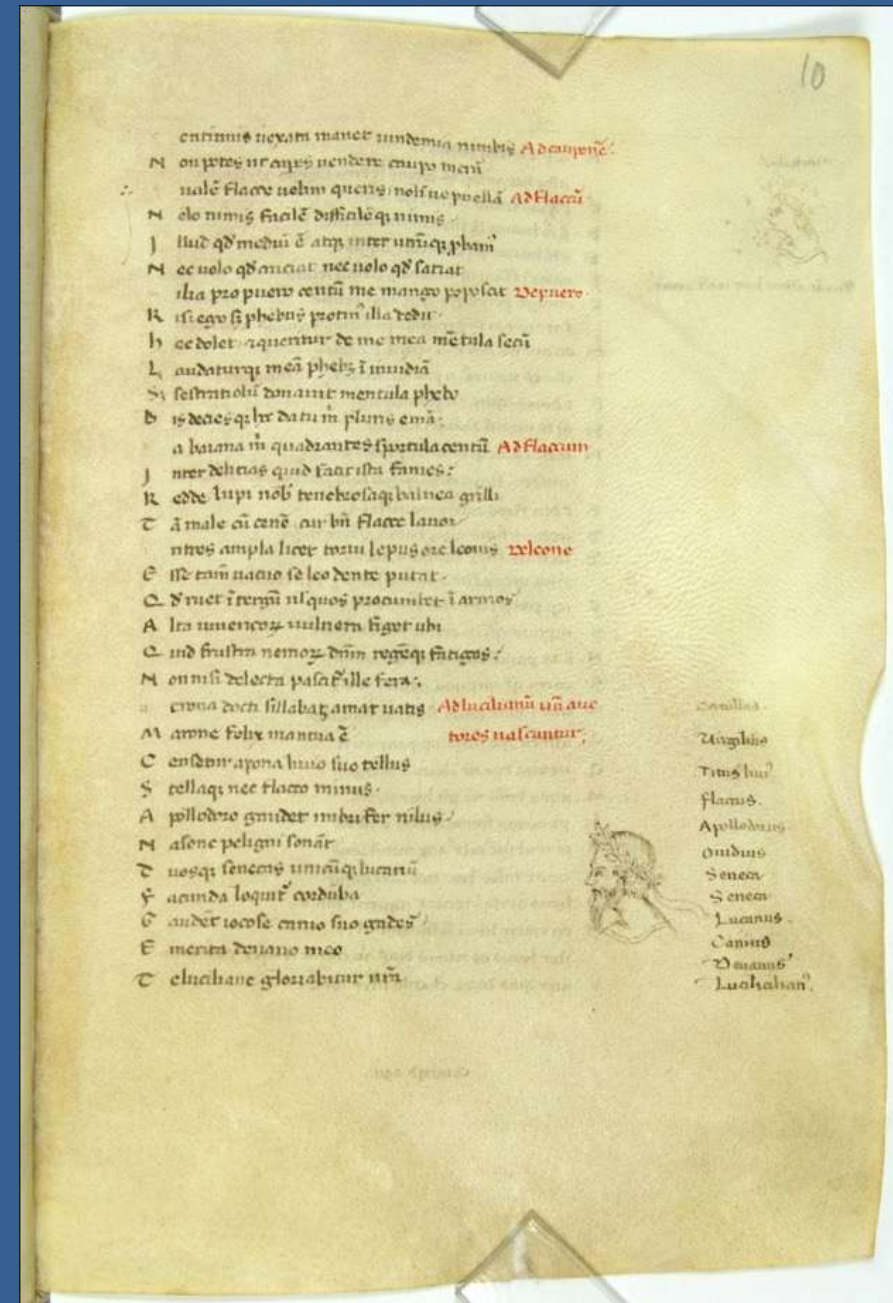 10
entinuis uexata manet uindemia nimbis Ad cauponē.
N on potes ut cupias uendere caupo merū
ualē flacce uelim queris nolī ue puellā Ad flaccū
N olo nimis facilē difficilē qȝ nimis
I llud qđ mediū ē atqȝ inter utrūqȝ ꝓbam
N ec uolo qđ cruciat nec uolo qđ satiat
ilia pro puero centū me mango poposcit De puero
R isi ego sȝ phebus protin' illa dedit
h oc dolet queritur de me mea mētula secū
L audaturqȝ meā phebȝ ī inuidiā
S; sestertiolū donauit mentula phebo
B is decies qȝ hͨ da tu m̄ pluris emā
a baiana m̄ quadrantes sportula centū Ad flaccum
I nter delicias quid facit ista fames
R edde lupi nob' tenebrosaqȝ balnea grilli
T ā male cū cenē cur bn̄ flacce lauor
ntres ampla licet torui lepus ora leonis De leone
E sse tam̄ uacuo se leo dente putat
Q đ ruet ī tergū ul' quos procumbet ī armos
A lta iuuencoꝝ uulnera figet ubi
Q uid frustra nemoꝝ dn̄m regēqȝ fatigas
N on nisi delecta pascit' ille fera
erona docti sillabas amat uatis Ad lucilianū uñ auc
M arone felix mantua ē tores nascuntur
C ensetur apona liuio suo tellus
S tellaqȝ nec flacco minus
A pollodoro gaudet imbrifer nilus
N asone peligni sonāt
D uosqȝ senecas unicūqȝ lucanū
F acunda loquit' corduba
G audet iocose canio suo gades
E merita deciano meo
T e luciliane gloriabitur nr̄a
Catullus
Virgilius
Titus liui'
flaccus
Apollodorus
Ouidius
Seneca
Seneca
Lucanus
Canius
Decianus
Lucilian'